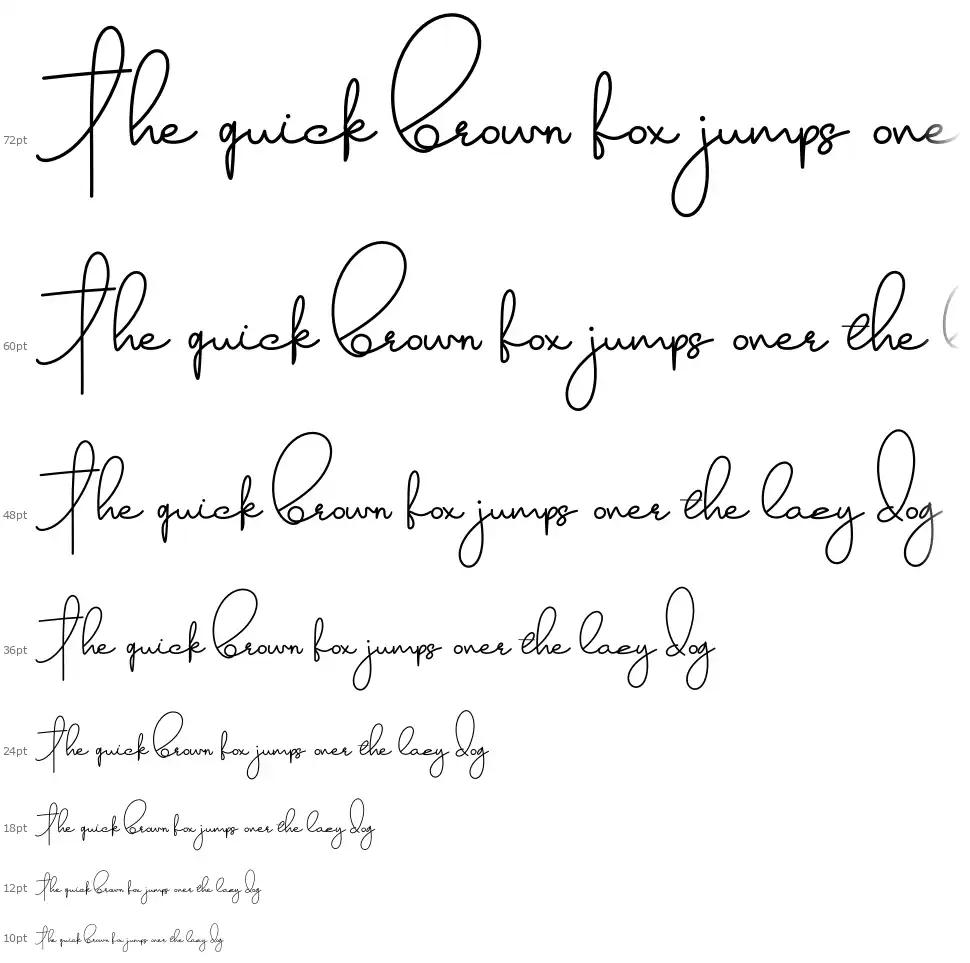 72pt the quick brown fox jumps one
60pt the quick brown fox jumps over the
48pt the quick brown fox jumps over the lazy dog
36pt the quick brown fox jumps over the lazy dog
24pt the quick brown fox jumps over the lazy dog
18pt the quick brown fox jumps over the lazy dog
12pt the quick brown fox jumps over the lazy dog
10pt the quick brown fox jumps over the lazy dog